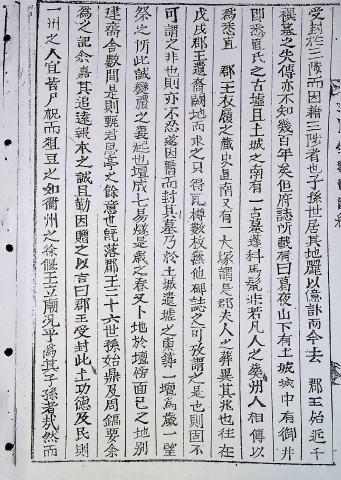 受封於三陟而因籍三陟者也子孫世居其地麗以億計而今去 郡王始近千
禩墓之失傳亦不知幾百年矣但府誌所載有曰葛夜山下有土城城中有御井
卽悉直氏之古墟且土城之南有一古墓蓬科馬鬣非若凡人之葬州人相傳以
爲悉直 郡王衣履之藏史直南又有一大塚謂是郡夫人之葬異其兆也往在
戊戌郡王遺裔闢地而求之只得瓦樽數枚無他碑誌之可攷謂之是也則固不
可謂之非也則亦不忍遂因舊而封其墓乃於土城遺墟之東築一壇爲歲一望
祭之所此誠變禮之義起也壇成七易燧是歲之春又卜地於壇傍面巳之地別
建齋舍數間是則甄君思亭之餘意也旣落郡王三十六世孫始鼎及周鎬要余
爲之記余嘉其追遠報本之誠且勤因贈之以言曰郡王受封此土功德及民則
一州之人宜皆尸祝而俎豆之如衢州之徐偃王立廟況乎爲其子孫者哉然而